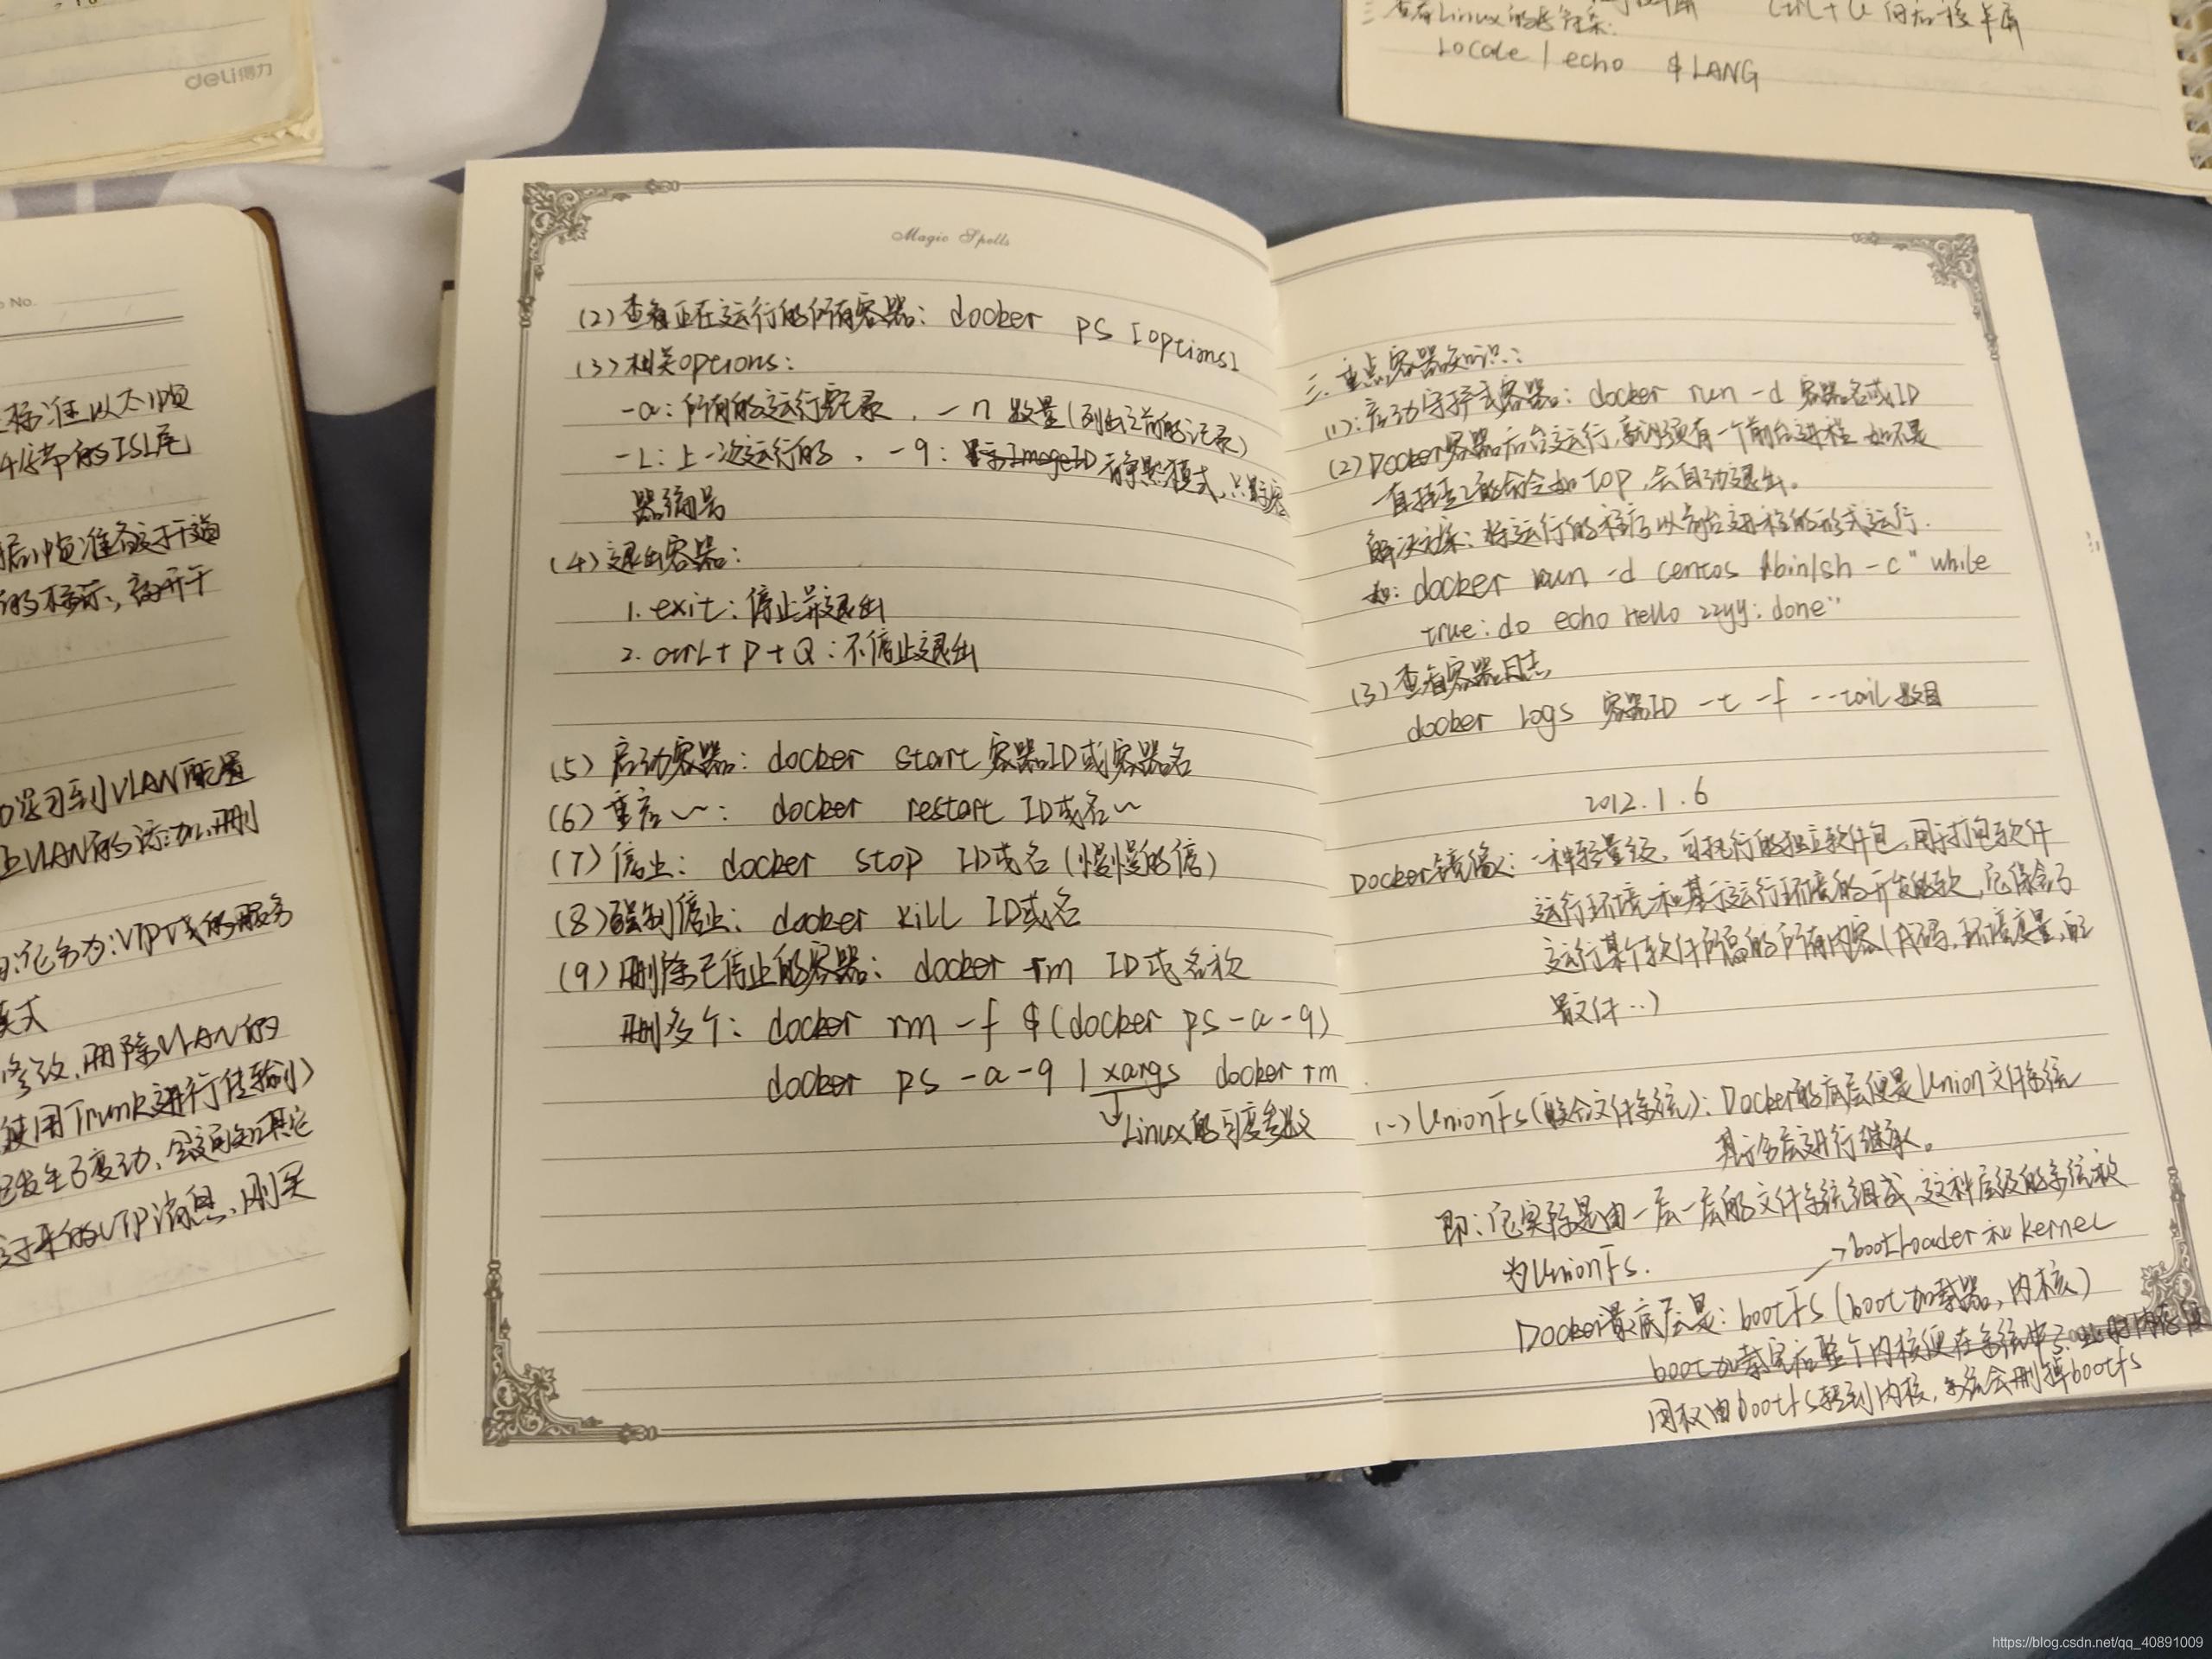 deli得力
o No.
标准以太帧
4字节的ISL尾
学习到VLAN配置
VLAN的添加、删
修改、删除VLAN的
使用Trunk进行传输)
发生了变动,会通知其它
的VTP消息,则
查看Linux的
Locale | echo $LANG
Magic Spells
(2)查看正在运行的所有容器: docker ps [options]
(3)相关options:
-a:所有的运行记录, -n 数量(列出之前的记录)
-L:上一次运行的, -q: 显示ImageID 静默模式,只显示容
器编号
(4)退出容器:
1. exit:停止并退出
2. ctrL+P+Q:不停止退出
(5)启动容器: docker start 容器ID或容器名
(6)重启~: docker restart ID或名~
(7)停止: docker stop ID或名(慢慢的停)
(8)强制停止: docker kill ID或名
(9)删除已停止的容器: docker rm ID或名称
删多个: docker rm -f $(docker ps -a -q)
docker ps -a -q | xargs docker rm
Linux的可变参数
三.重点容器知识:
(1):启动守护式容器: docker run -d 容器名或ID
(2)Docker容器后台运行,就必须有一个前台进程.如不是
一直挂起的命令如TOP,会自动退出。
解决方案:将运行的程序以前台进程的形式运行.
如: docker run -d centos /bin/sh -c "while
true: do echo Hello zzyy: done"
(3)查看容器日志
docker Logs 容器ID -t -f --tail 数目
2012.1.6
Docker镜像:一种轻量级、可执行的独立软件包,用于打包软件
运行环境和基于运行环境的开发的软,它保含了
运行某个软件所需的所有内容(代码,环境变量,配
置文件…)
(一) UnionFs(联合文件系统): Docker的底层便是Union文件系统
其分层进行继承。
即:它实际是由一层一层的文件系统组成,这种层级的系统被
为UnionFs.
→bootLoader和kerneL
Docker最底层是: bootFs (boot加载器,内核)
boot加载完后整个内核便在系统中了.此时内存使
用权由bootfs转到内核,系统会删掉bootfs
https://blog.csdn.net/qq_40891009